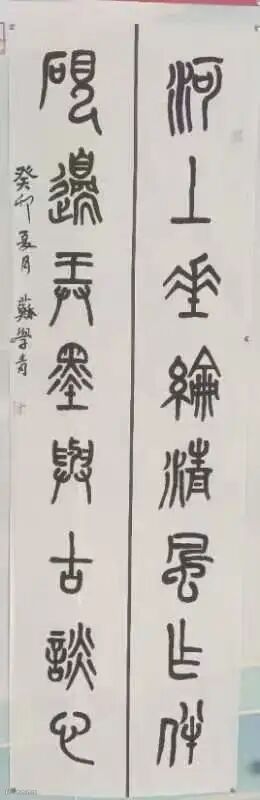 河上垂綸清風作伴
硯邊弄墨與古談心
癸卯夏月 蘇學青